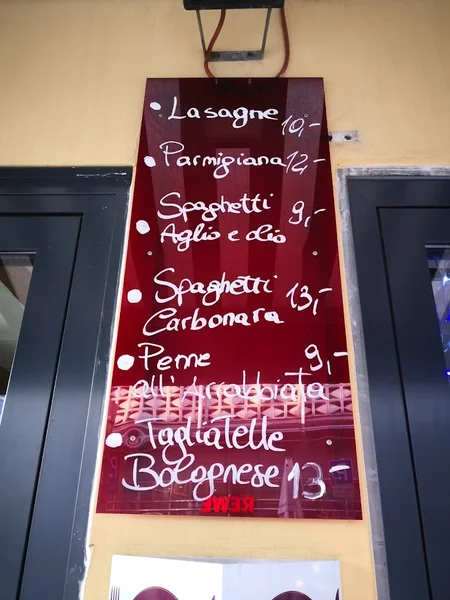 • Lasagne 10,-
• Parmigiana 12-
Spaghetti 9,-
• Aglio e olio
• Spaghetti 13,-
Carbonara
• Penne 9,-
all'Arrabbiata
• Tagliatelle
Bolognese 13-
REWE